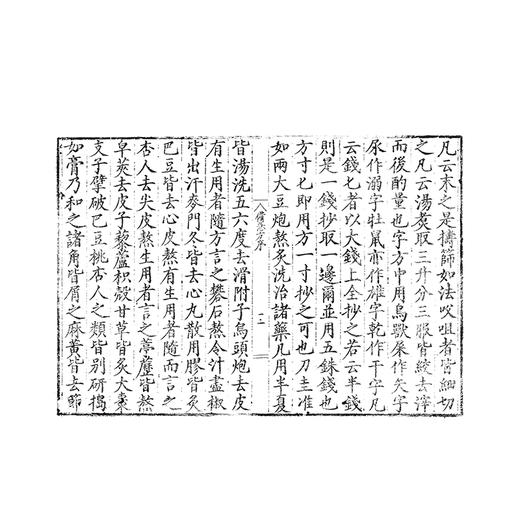 凡云末之是擣篩如法㕮咀者皆細切
之凡云湯煑取三升分三服皆絞去滓
而後酌量也字方中用鳥獸屎作矢字
尿作溺字牡鼠亦作雄字乾作干字凡
云錢匕者以大錢上全抄之若云半錢
則是一錢抄取一邊爾並用五銖錢也
方寸匕即用方一寸抄之可也刀圭准
如兩大豆炮熬炙洗治諸藥凡用半夏
序
二
皆湯洗五六度去滑附子烏頭炮去皮
有生用者隨方言之礬石熬令汁盡椒
皆出汗麥門冬皆去心丸散用膠皆炙
巴豆皆去心皮熬有生用者隨而言之
杏人去尖皮熬生用者言之葶藶皆熬
皁莢去皮子藜蘆枳殼甘草皆炙大棗
支子擘破巴豆桃杏人之類皆別研搗
如膏乃和之諸角皆屑之麻黃皆去節